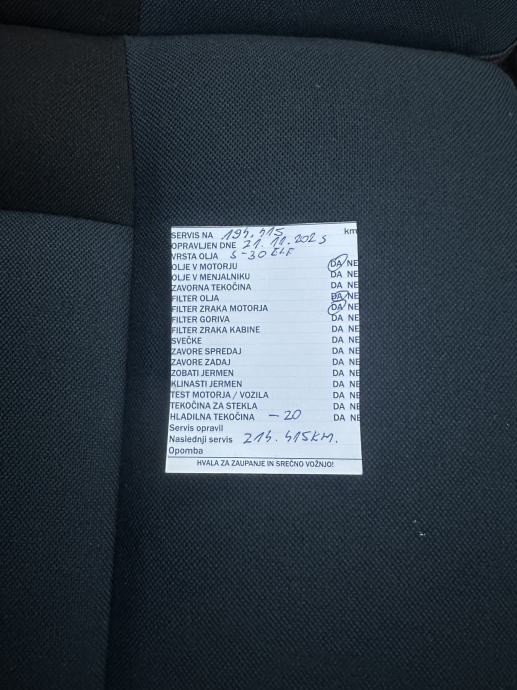 SERVIS NA 194.415 km
OPRAVLJEN DNE 21.11.2025
VRSTA OLJA 5-30 ELF
OLJE V MOTORJU DA NE
OLJE V MENJALNIKU DA NE
ZAVORNA TEKOČINA DA NE
FILTER OLJA DA NE
FILTER ZRAKA MOTORJA DA NE
FILTER GORIVA DA NE
FILTER ZRAKA KABINE DA NE
SVEČKE DA NE
ZAVORE SPREDAJ DA NE
ZAVORE ZADAJ DA NE
ZOBATI JERMEN DA NE
KLINASTI JERMEN DA NE
TEST MOTORJA / VOZILA DA NE
TEKOČINA ZA STEKLA DA NE
HLADILNA TEKOČINA -20 DA NE
Servis opravil
Naslednji servis 214.415KM.
Opomba
HVALA ZA ZAUPANJE IN SREČNO VOŽNJO!